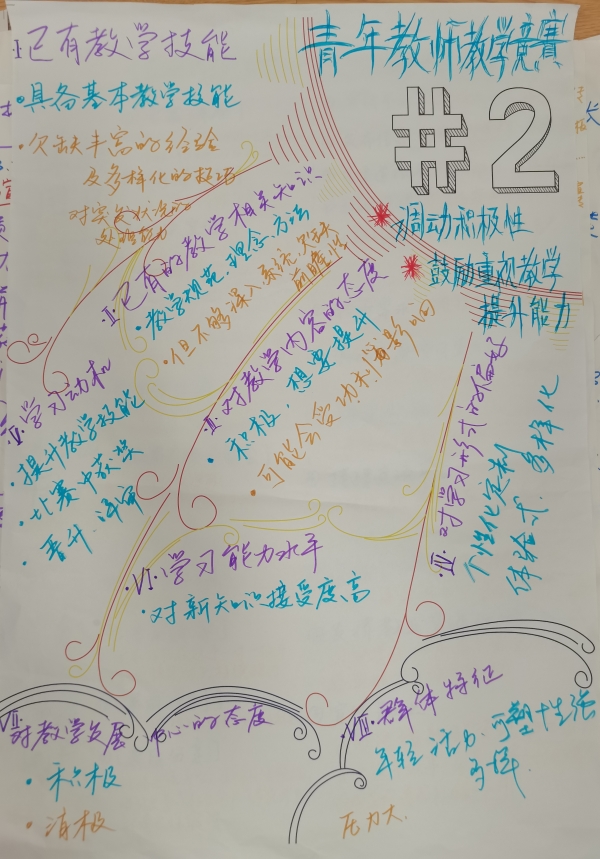 青年教师教学竞赛
#2
调动积极性
鼓励重视教学
提升能力
I·已有教学技能
·具备基本教学技能
·欠缺丰富的经验
及多样化的技巧
对突发状况的
处理能力
II·已有的教学相关知识
·教学规范、理念、方法
·但不够深入系统、欠缺
前瞻性
III·对教学内容的态度
·积极,想要提升
·可能会受功利化影响
IV·对学习形式的偏好
个性化定制
体验式、多样化
V·学习动机
·提升教学技能
·比赛中获奖
·晋升、评审
VI·学习能力水平
·对新知识接受度高
VII·
对教学发展中心的态度
·积极
·消极
VIII·群体特征
年轻活力、可塑性强
多样
压力大.